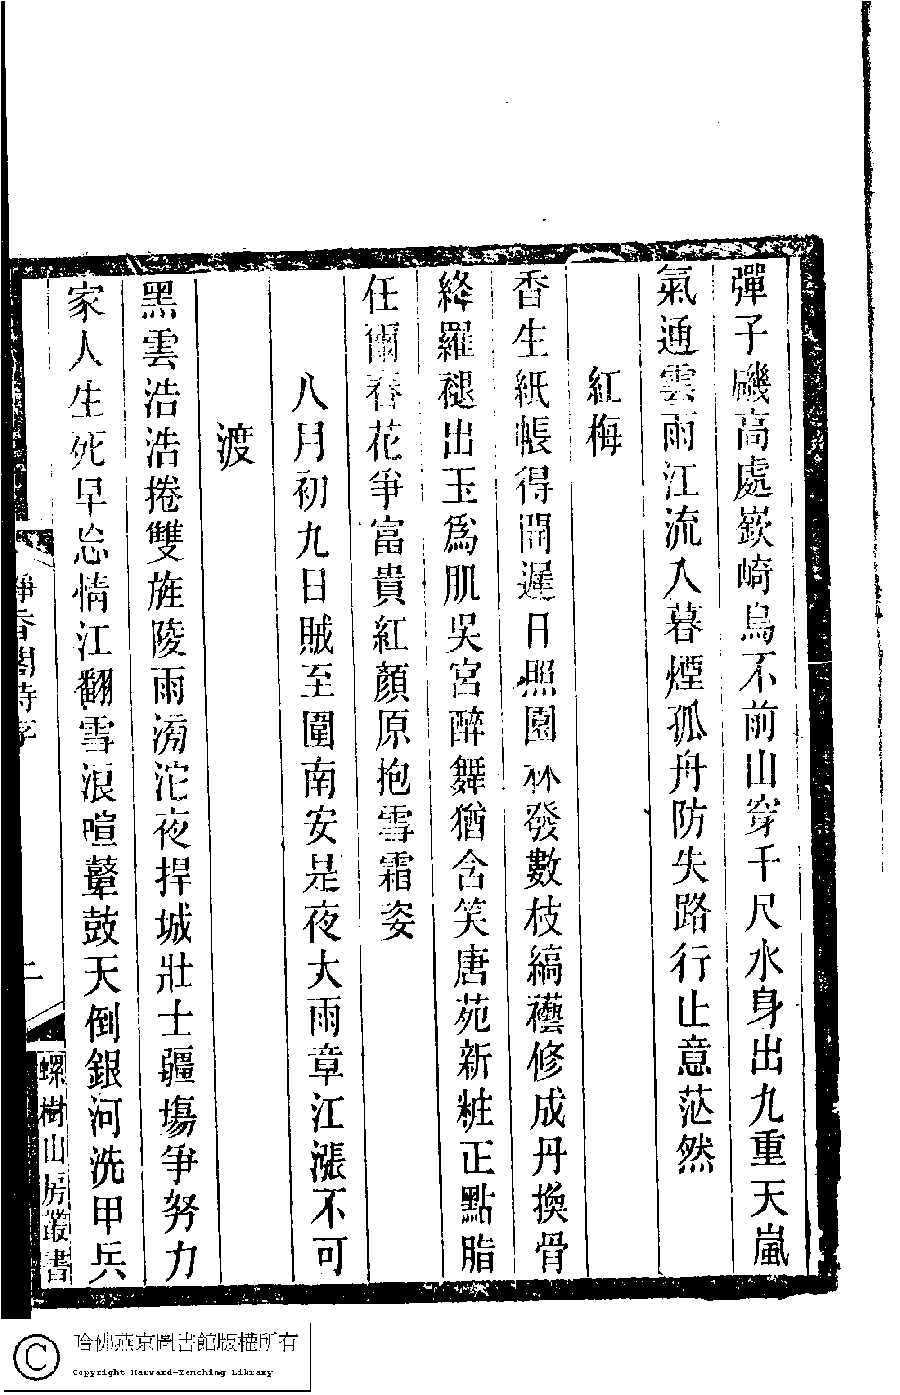 彈子磯高處嶔崎鳥不前山穿千尺水身出九重天嵐
氣通雲雨江流入暮煙孤舟防失路行止意茫然
紅梅
香生紙帳得開遲日照園林發數枝縞袂修成丹換骨
絳羅褪出玉為肌吳宮醉舞猶含笑唐苑新粧正點脂
任爾春花爭富貴紅顏原抱雪霜姿
八月初九日賊至圍南安是夜大雨章江漲不可
渡
黑雲浩浩捲雙旌陵雨滂沱夜捍城壯士疆場爭努力
家人生死早忘情江翻雪浪喧鼙鼓天倒銀河洗甲兵
靜香閣詩存
二
螺樹山房叢書
哈佛燕京圖書館版權所有
Copyright Harvard-Yenching Library